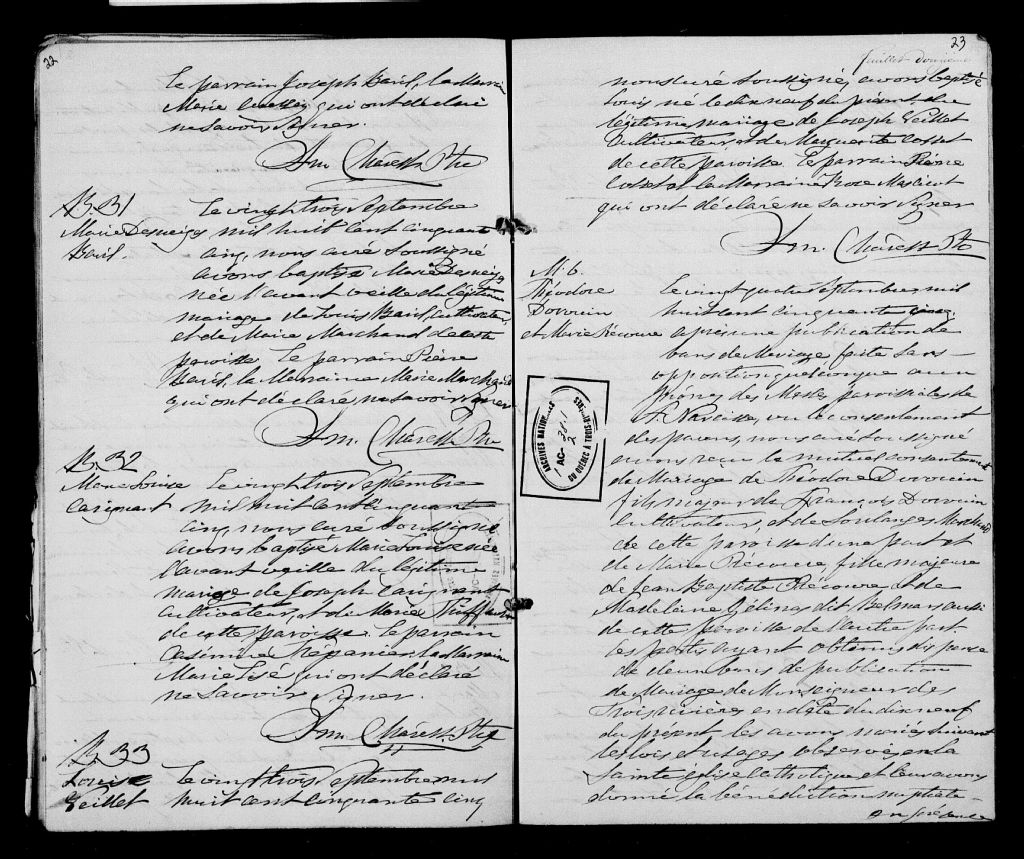 22
le parrain Joseph Baril, la Marraine
Marie qui ont déclaré
ne savoir signer.
Am. Ptre
B. B1
Marie Desneiges
Baril.
Le vingt trois Septembre
mil huit cent cinquante
cinq, nous curé soussigné
avons baptisé Marie Desneiges
née l'avant veille du légitime
mariage de Louis Baril, cultivateur,
et de Marie Marchand de cette
paroisse. Le parrain Pierre
Baril, la Marraine Marie Marchand
qui ont déclaré ne savoir signer
Am. Ptre
B. B2
Marie Louise
Carignant
Le vingt trois Septembre
mil huit cent cinquante
cinq, nous curé soussigné
avons baptisé Marie Louise née
l'avant veille du légitime
mariage de Joseph Carignant
cultivateur, et de Marie
de cette paroisse. Le parrain
Casimire Trépanier, la Marraine
Marie qui ont déclaré
ne savoir signer.
Am. Ptre
B. B3
Louis
Veillet
Le vingt trois Septembre mil
huit cent cinquante cinq
23
Juillet
nous curé soussigné, avons baptisé
Louis né le dix neuf du présent du
légitime mariage de Joseph Veillet
Cultivateur et de Marguerite Cosset
de cette paroisse Le parrain Pierre
Cosset et la Marraine Rose
qui ont déclaré ne savoir signer
Am. Ptre
M. 6.
Théodore
Drouin
et Marie Récoure
Le vingt quatre Septembre mil
huit cent cinquante cinq,
après une publication de
bans de Mariage, faite sans
opposition quelconque aux
prônes des Messes paroissiales de
St Narcisse, vu le consentement
des parens, nous curé soussigné
avons reçu le mutuel consentement
de Mariage de Théodore Drouin
fils majeur de François Drouin
Cultivateur, et de Soulanges Marchand
de cette paroisse d'une part et
de Marie Récoure, fille majeure
de Jean Baptiste Récoure et de
Madelaine Gélinas dit Belmar aussi
de cette paroisse de l'autre part.
les partis ayant obtenu dispense
de deux bans de publication
de Mariage de Monseigneur des
Trois rivières en date du dix neuf
du présent les avons mariés suivant
les lois et usages observés en la
Sainte église Catholique et leur avons
donné la bénédiction nuptiale
en présence
ARCHIVES NATIONALES
AC-
2
DU QUÉBEC À TROIS-RIVIÈRES